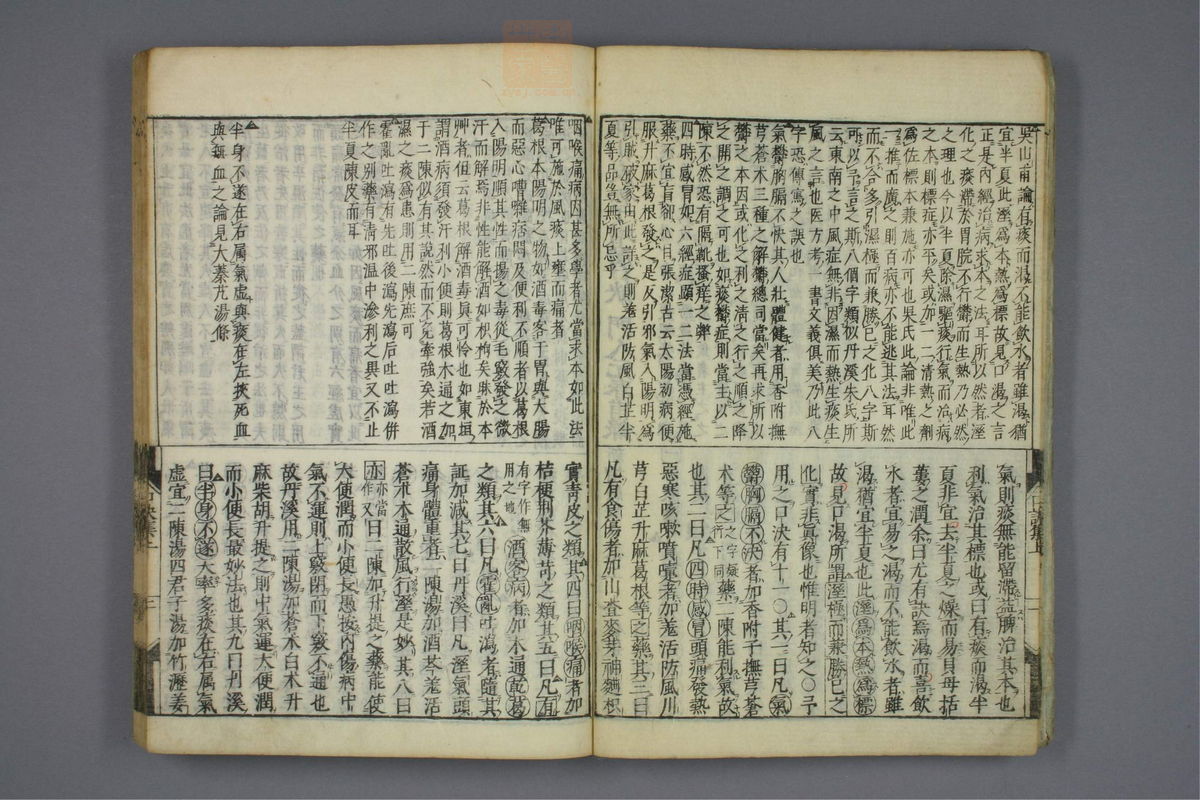 吳山甫論有痰而渴不能飲水者雖渴猶
宜半夏此溼為本熱為標故見口渴之言
正是內經治病求本之法耳所以然者溼
化之痰滯於胃脘不行欝而生熱乃必然
之理也今以半夏除濕驅痰行氣而治病
之本則標症亦平矣或加一二清熱之劑
為佐標本兼施亦可也吳氏此論非唯此
一推而廣之則百病亦不能逃其法耳然
而不合多引濕極而兼勝已之化八字斯
可以予言之斯八個字類似丹溪朱氏所
云東南之中風症無非因濕而熱生痰生
風之言也医方考一書文義俱美乃此八
字恐傳寫之誤也
氣欝胸膈不快其人壯體健者用香附撫
芎蒼朮三種之解欝總司當矣再求所以
欝之本因或化之利之清之行之順之降
之開之謂之可也如痰欝症則當主以二
陳不然恐有隔靴搔痒之弊
四時感冒如六經症顯一二法當憑經施
藥不宜盲視心目張潔古云太陽初病便
服升麻葛根發之是反引邪氣入陽明為
引賊破家由此詳之則羌活防風白芷半
夏等品豈無所忌乎
氣則痰無能留滯益脾治其本也
利氣治其標也或曰有痰而渴半
夏非宜去半夏之燥而易貝母括
蔞之潤余曰尤有訣焉渴而喜飲
水者宜易之渴而不能飲水者雖
渴猶宜半夏也此溼為本熱為標
故見口渴所謂溼極而兼勝已之
化實非真像也惟明者知之〇予
用之口決有十一〇其一曰凡氣
欝胸膈不快者加香附子撫芎蒼
朮等之之字疑行下同藥二陳能利氣故
也其二曰凡四時感冒頭痛發熱
惡寒咳嗽噴嚏者加羌活防風川
芎白芷升麻葛根等之藥其三曰
凡有食傷者加山査麥芽神麯枳
咽喉痛病因甚多學者尤當求本如此法
唯可施於風痰上壅而痛者
葛根本陽明之物如酒毒客于胃與大腸
而惡心嘈囃病悶及便利不順者以葛根
入陽明順其性而揚之毒從毛竅發之微
汗而解焉非性能解酒如根枸矣縣於本
艸者但云葛根解酒毒眞可怜也如東垣
謂酒病須發汗利小便則葛根木通之加
于二陳似有其說然而不免牽強矣若酒
濕之痰為患則用二陳庶可
霍亂吐瀉有先吐後瀉先瀉后吐吐瀉併
作之別藥有清邪温中滲利之異又不止
半夏陳皮而耳
半身不遂在右属氣虛與痰在左挾死血
與無血之論見大秦艽湯條
實青皮之類其四曰咽喉痛者加
桔梗荊芥薄苛之類其五曰凡有
有字作無用之嫌酒客病者加木通乾葛
之類其六曰凡霍亂吐瀉者隨其
証加減其七曰丹溪曰凡溼氣頭
痛身體重者二陳湯加酒芩羌活
蒼朮木通散風行溼是妙其八曰
亦亦當作又曰二陳加升提之藥能使
大便潤而小便長愚按內傷病中
氣不運則上竅閉而下竅不通也
故丹溪用二陳湯加蒼朮白朮升
麻柴胡升提之則中氣運大便潤
而小便長最妙法也其九曰丹溪
曰半身不遂大率多痰在右属氣
虛宜二陳湯四君子湯加竹瀝姜